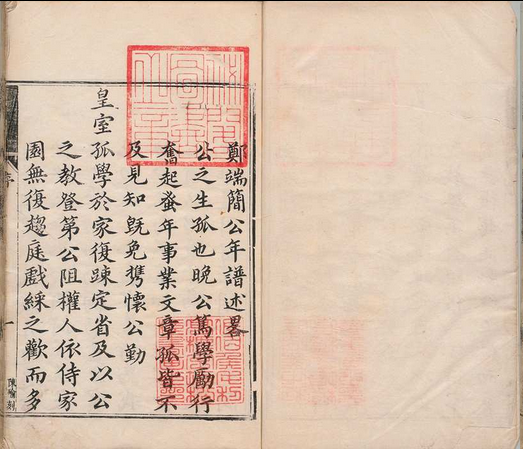 祕閣圖書之章
鄭端簡公年譜述畧
公之生孤也晚公篤學勵行
奮起蚤年事業文章孤皆不
及見知旣免携懷公勤
皇室孤學於家復踈定省及以公
之教登第公阻權人依侍家
園無復趨庭戲綵之歡而多
序
一